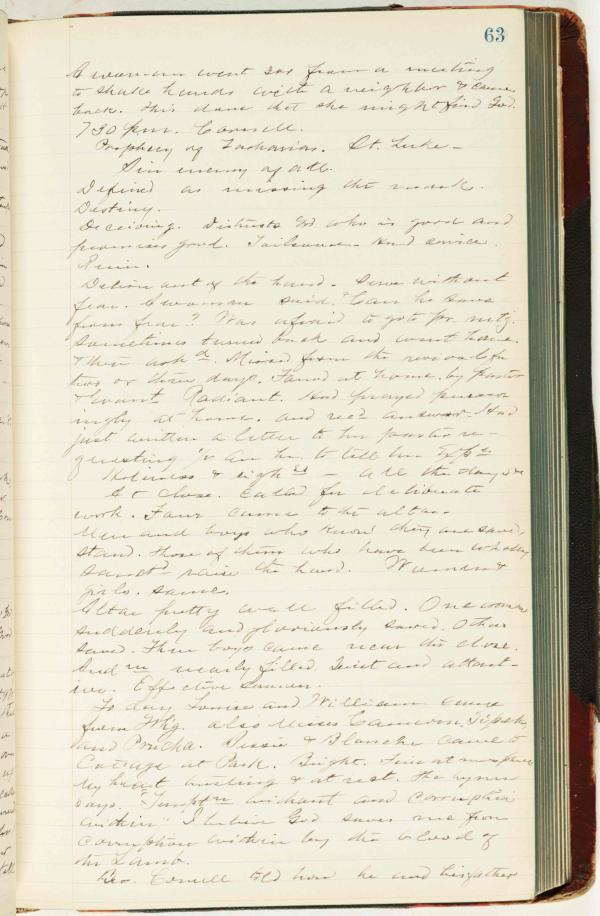 63
A woman went out from a meeting
to shake hands with a neighbor & came
back. This done that she might find God.
7 30 p.m. Cornell.
Prophecy of Zacharias. St. Luke –
Sin enemy of all.
Defined as missing the mark.
Destiny.
Deceiving. Distrusts God who is good and
promises good. Hard service.
Ruin.
out of the hand. Serve without
fear. A woman said. "Can he save
from fear?" Was afraid to go to pr. mtg.
Sometimes turned back and went home.
Missed from the revival for
two or three days. Found at home by pastor
& Radiant. Had prayed
ingly at home. and rec'd answer. Had
just written a letter to her pastor re-
questing to tell
Holiness & – all the days &c
At close. Called for deliberate
work. Four came to the altar.
Men and boys who know they are saved,
stand. Those of them who have been wholly
sanct'd raise the hand. Women &
girls. same.
Altar pretty well filled. One woman
suddenly and gloriously saved. Others
saved. Three boys came near the close.
nearly filled. Quiet and attent-
ive. Effective sermon.
To day Louise and William came
from also Misses Cameron,
and Bessie & Blanche came to
Cottage at Park. Bright.
My heart trusting & at rest. The hymn
says. without and corruption
within" I believe God saves me from
corruption within by the blood of
the Lamb.
Bro. Cornell told how he and his father